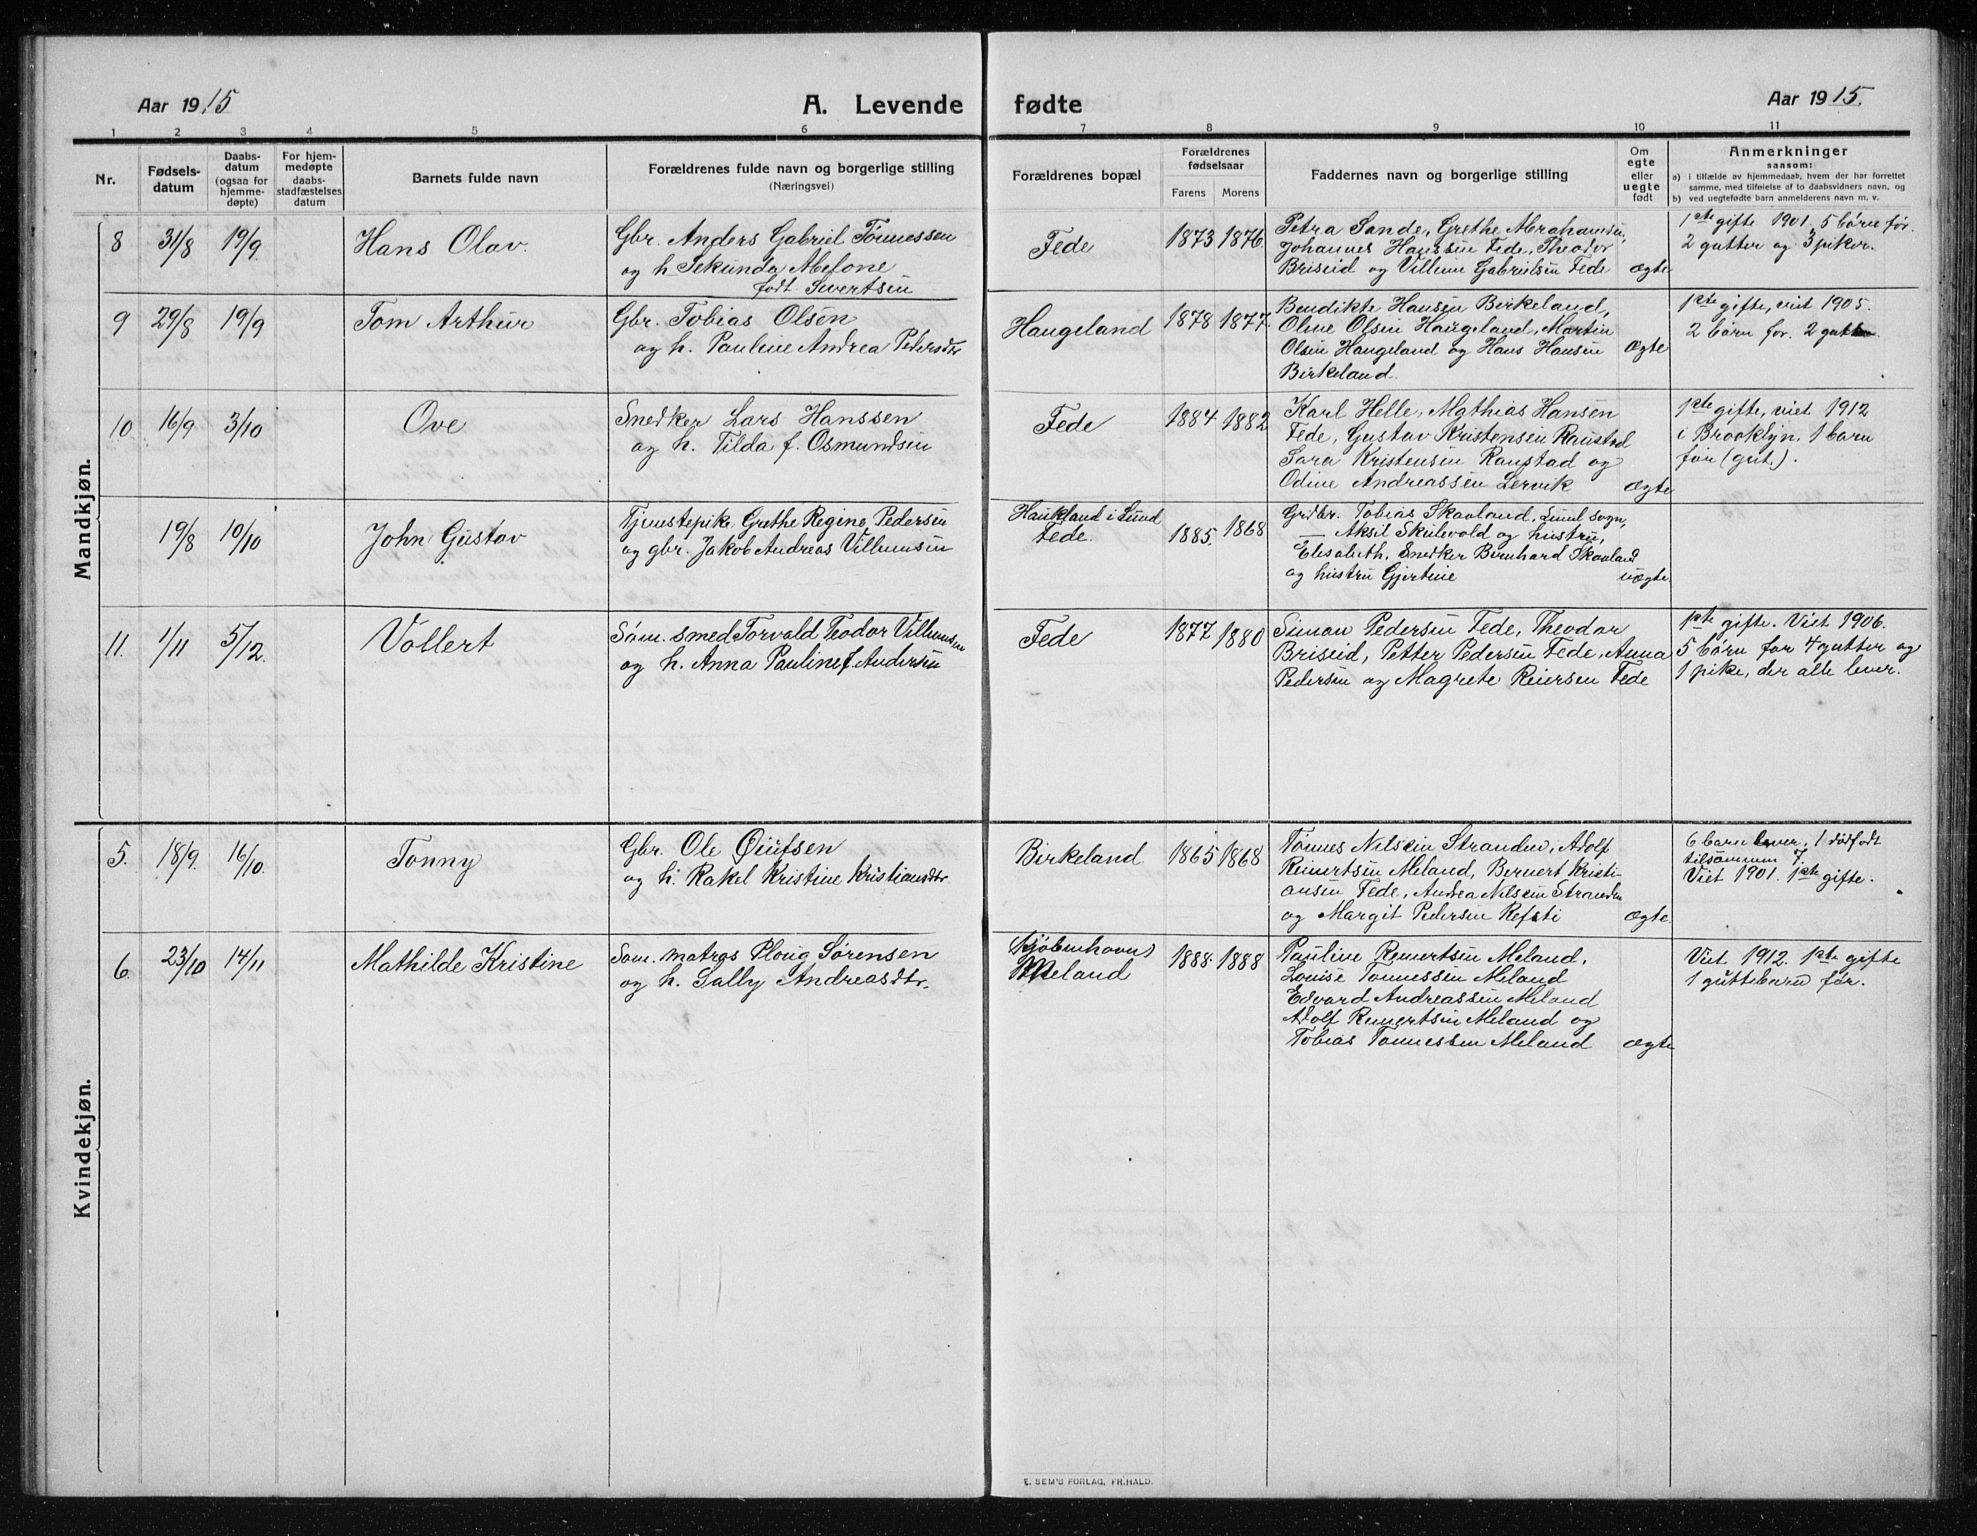 Aar 1915
A. Levende fødte
Aar 1915.
1 2 3 4 5 6 7 8 9 10 11
Nr.
Fødsels-
datum
Daabs-
datum
(ogsaa for
hjemme-
døpte)
For hjem-
medøpte
daabs-
stadfæstelses
datum
Barnets fulde navn
Forældrenes fulde navn og borgerlige stilling
(Næringsvei)
Forældrenes bopæl
Forældrenes
fødselsaar
Farens Morens
Faddernes navn og borgerlige stilling
Om
egte
eller
uegte
født
Anmerkninger
saasom:
a) i tilfælde av hjemmedaab, hvem der har forrettet
samme, med tilføielse af to daabsvidners navn, og
b) ved uegtefødte barn anmelderens navn m. v.
Mandkjøn.
8 31/8 19/9 Hans Olav.
Gbr. Anders Gabriel Tönnessen
og h. Sekunda Abefone
født Sivertsen
Fede 1873 1876.
Petra Sande, Grethe Abrahamsen,
Johannes Hanssen Fede, Theodor
Briseid og Villum Gabrielsen Fede
ægte
1ste gifte 1901, 5 børn før.
2 gutter og 3 piker.
9 29/8 19/9 Tom Arthur
Gbr. Tobias Olsen
og h. Pauline Andrea Pedersdtr
Haugeland 1878 1877.
Bendikte Hansen Birkeland,
Oline Olsen Haugeland, Martin
Olsen Haugeland og Hans Hansen
Birkeland.
ægte
1ste gifte, viet 1905.
2 børn før. 2 gutter.
10 16/9 3/10 Ove
Snedker Lars Hanssen
og h. Tilda f. Osmundsen
Fede 1884 1882
Karl Helle, Mathias Hansen
Fede, Gustav Kristensen Raustad
Sara Kristensen Raustad og
Odine Andreassen Lervik
ægte
1ste gifte, viet 1912
i Brooklyn. 1 barn
før (gut.).
19/8 10/10 John Gustav
Tjenestepike Grethe Regine Pedersen
og gbr. Jakob Andreas Villumsen
Haukland i Lund
Fede.
1885. 1868
Grdbr. Tobias Skaaland, Lund sogn,
— Aksil Skulevold og hustru,
Elisabeth, Snedker Bernhard Skaaland
og hustru Gjertine
uægte.
11. 1/11 5/12. Vollert
Søm. smed Torvald Teodor Villumsen
og h. Anna Pauline f. Andersen
Fede 1877 1880
Simon Pedersen Fede, Theodor
Briseid, Petter Pedersen Fede, Anna
Pedersen og Magrete Reiersen Fede
1ste gifte. Viet 1906.
5 børn før 4 gutter og
1 pike, der alle lever.
Kvindekjøn.
5. 18/9. 16/10. Tonny
Gbr. Ole Øiufsen
og h. Rakel Kristine Kristiansdtr.
Birkeland 1865 1868
Tönnes Nilsen Stranden, Adolf
Reinertsen Meland, Bernert Kristi-
ansen Fede, Andrea Nilsen Stranden
og Margit Pedersen Refsti
ægte
6 barn lever, 1 dødfødt
tilsammen 7.
Viet 1901. 1ste gifte.
6. 23/10 14/11 Mathilde Kristine
Søm. matros Ploug Sørensen
og h. Salby Andreasdtr.
Kjøbenhavn
Meland
1888. 1888
Pauline Reinertsen Meland,
Louise Tönnessen Meland
Edvard Andreassen Meland
Adolf Reinertsen Meland og
Tobias Tönnessen Meland
ægte
Viet 1912. 1ste gifte
1 guttebarn før.
E. SEM'S FORLAG, FR.HALD.